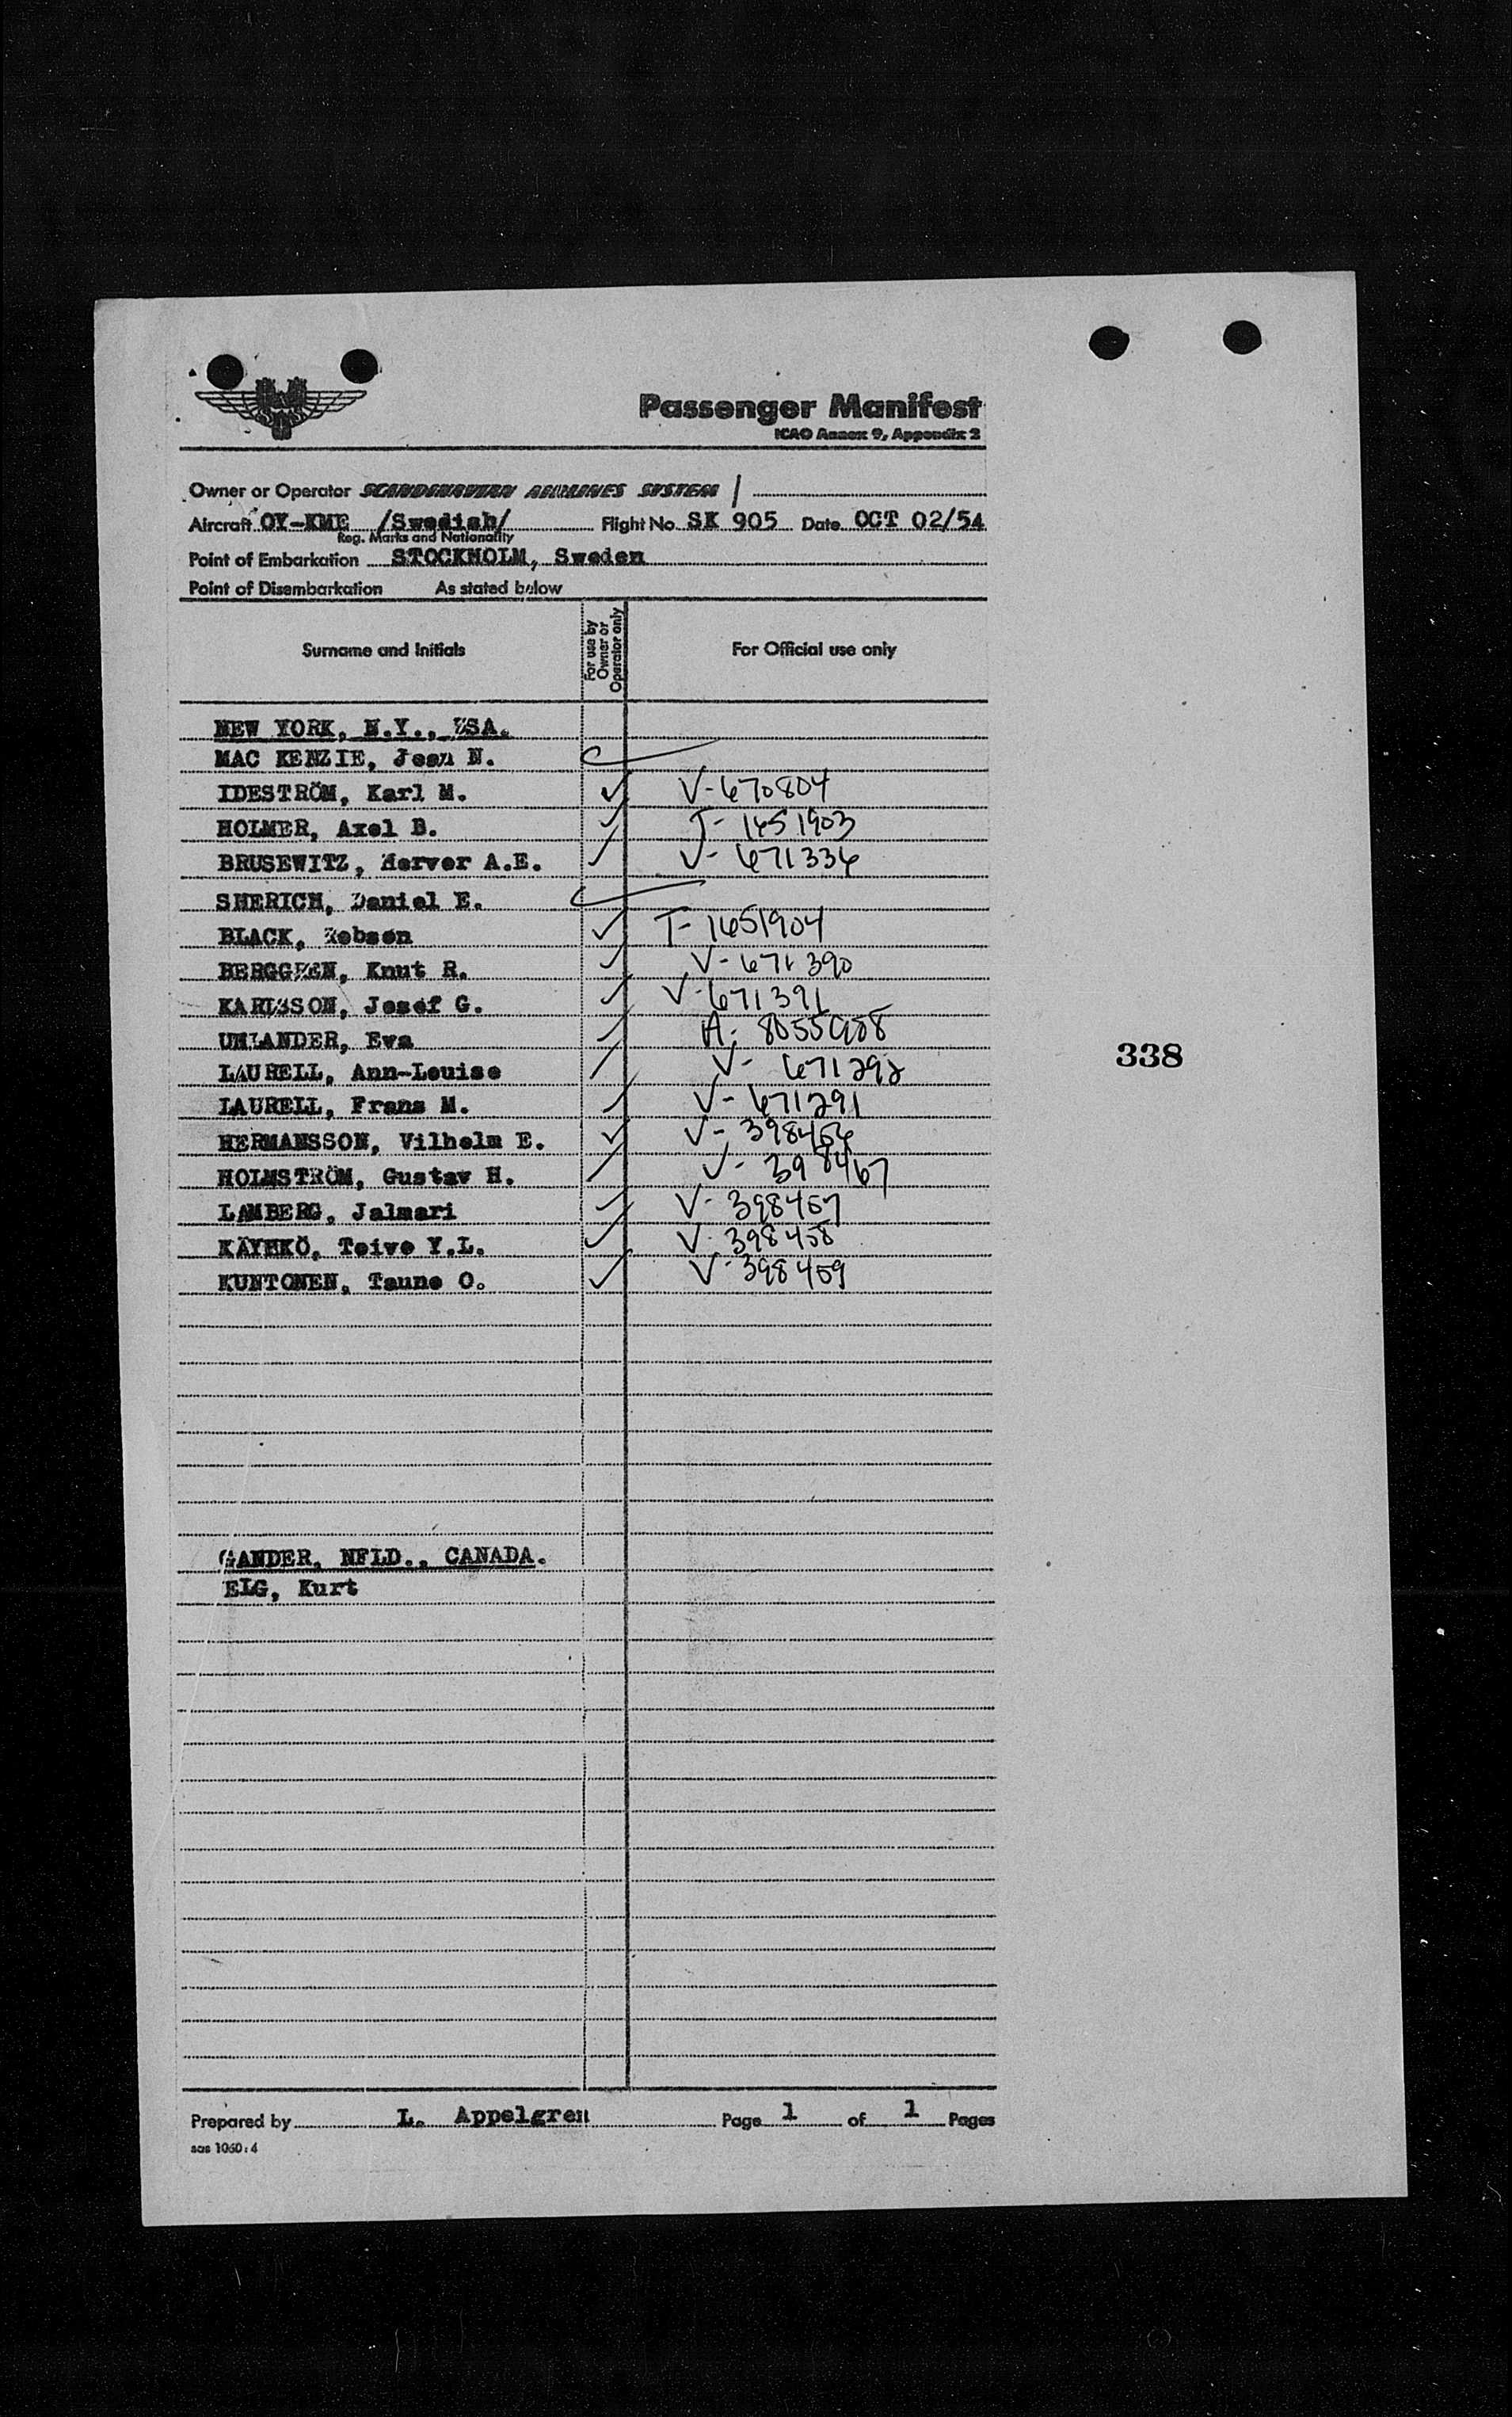 Passenger Manifest
ICAO Annex 9, Appendix 2
Owner or Operator SCANDINAVIAN AIRLINES SYSTEM /
Aircraft OY-KME /Swedish/ Flight No. SK 905 Date OCT 02/54
Reg. Marks and Nationality
Point of Embarkation STOCKHOLM, Sweden
Point of Disembarkation As stated below
Surname and Initials For use by Owner or Operator only For Official use only
NEW YORK, N.Y., USA.
MAC KENZIE, Jean N.
IDESTRÖM, Karl M. V-670804
HOLMER, Axel B. T-1651903
BRUSEWITZ, Herver A.E. V-671336
SHERICH, Daniel E.
BLACK, Robson T-1651904
BERGGREN, Knut R. V-671390
KARLSSON, Josef G. V-671391
UHLANDER, Eva A-8055988
LAURELL, Ann-Louise V-671292
LAURELL, Frans M. V-671291
HERMANSSON, Vilhelm E. V-398456
HOLMSTRÖM, Gustav H. V-398467
LAMBERG, Jalmari V-398457
KÄYHKÖ, Toivo Y.L. V-398458
KUNTONEN, Tauno O. V-398459
338
GANDER, NFLD., CANADA.
ELG, Kurt
Prepared by L. Appelgren Page 1 of 1 Pages
sas 1060:4